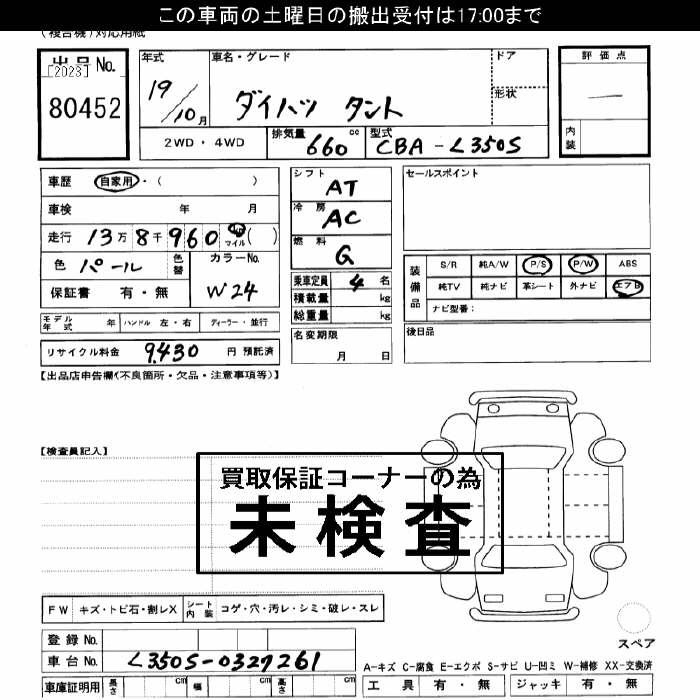 この車両の土曜日の搬出受付は17:00まで
(複合機)対応用紙
出品No.
[2023]
80452
年式
19/10月
車名・グレード
ダイハツ タント
ドア
形状
評価点
内装
2WD・4WD
排気量 660 cc
型式 CBA-L350S
車歴 自家用・( )
車検 年 月
走行 13万8千960 km マイル ( )
色 パール 色替
カラーNo. W24
保証書 有・無
モデル年式 年 ハンドル 左・右 ディーラー・並行
リサイクル料金 9,430 円 預託済
シフト AT
冷房 AC
燃料 G
乗車定員 4 名
積載量 kg
総重量 kg
名変期限
月 日
セールスポイント
装備品
S/R 純A/W P/S P/W ABS
純TV 純ナビ 革シート 外ナビ エアB
ナビ型番:
後日品
【出品店申告欄(不良箇所・欠品・注意事項等)】
【検査員記入】
買取保証コーナーの為
未検査
FW キズ・トビ石・割レX シート内装 コゲ・穴・汚レ・シミ・破レ・スレ
登録No.
車台No. L350S-0327261
車庫証明用 長さ cm 幅 cm 高さ cm
スペア
A-キズ C-腐食 E-エクボ S-サビ U-凹ミ W-補修 XX-交換済
工具 有・無 ジャッキ 有・無